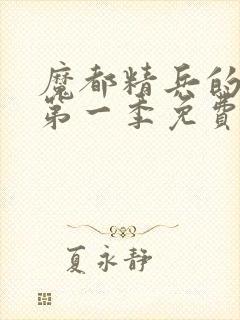 魔都精兵的
第一季免費
夏永静